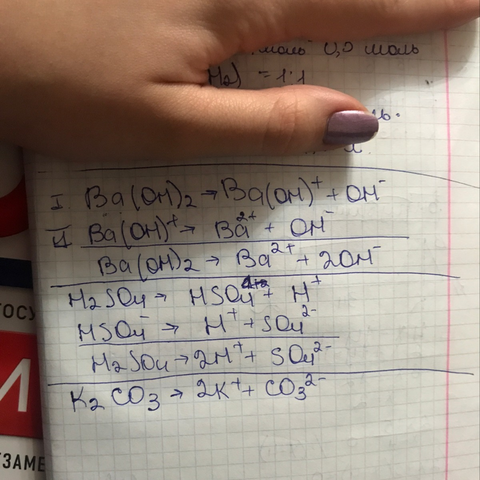 моль 0,5 моль
H2) = 1:1
I Ba(OH)₂ → Ba(OH)⁺ + OH⁻
II Ba(OH)⁺ → Ba²⁺ + OH⁻
Ba(OH)₂ → Ba²⁺ + 2OH⁻
H₂SO₄ → HSO₄⁻ + H⁺
HSO₄⁻ → H⁺ + SO₄²⁻
H₂SO₄ → 2H⁺ + SO₄²⁻
K₂CO₃ → 2K⁺ + CO₃²⁻
ГОСУ
ЗАМЕ